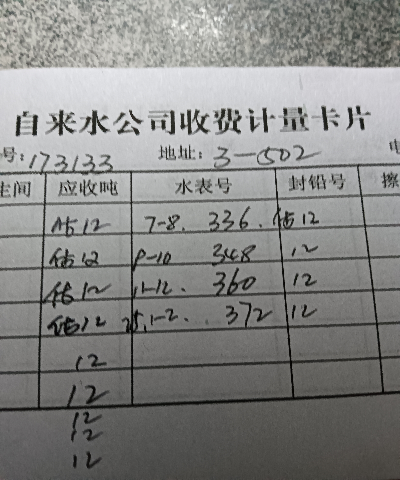 自来水公司收费计量卡片
号:173133 地址:3-502 电
生间 应收吨 水表号 封铅号 擦
估12 7-8. 336. 估12
估12 9-10 348 12
估12 11-12. 360 12
估12 25.1-2. 372 12
12
12
12
12
12